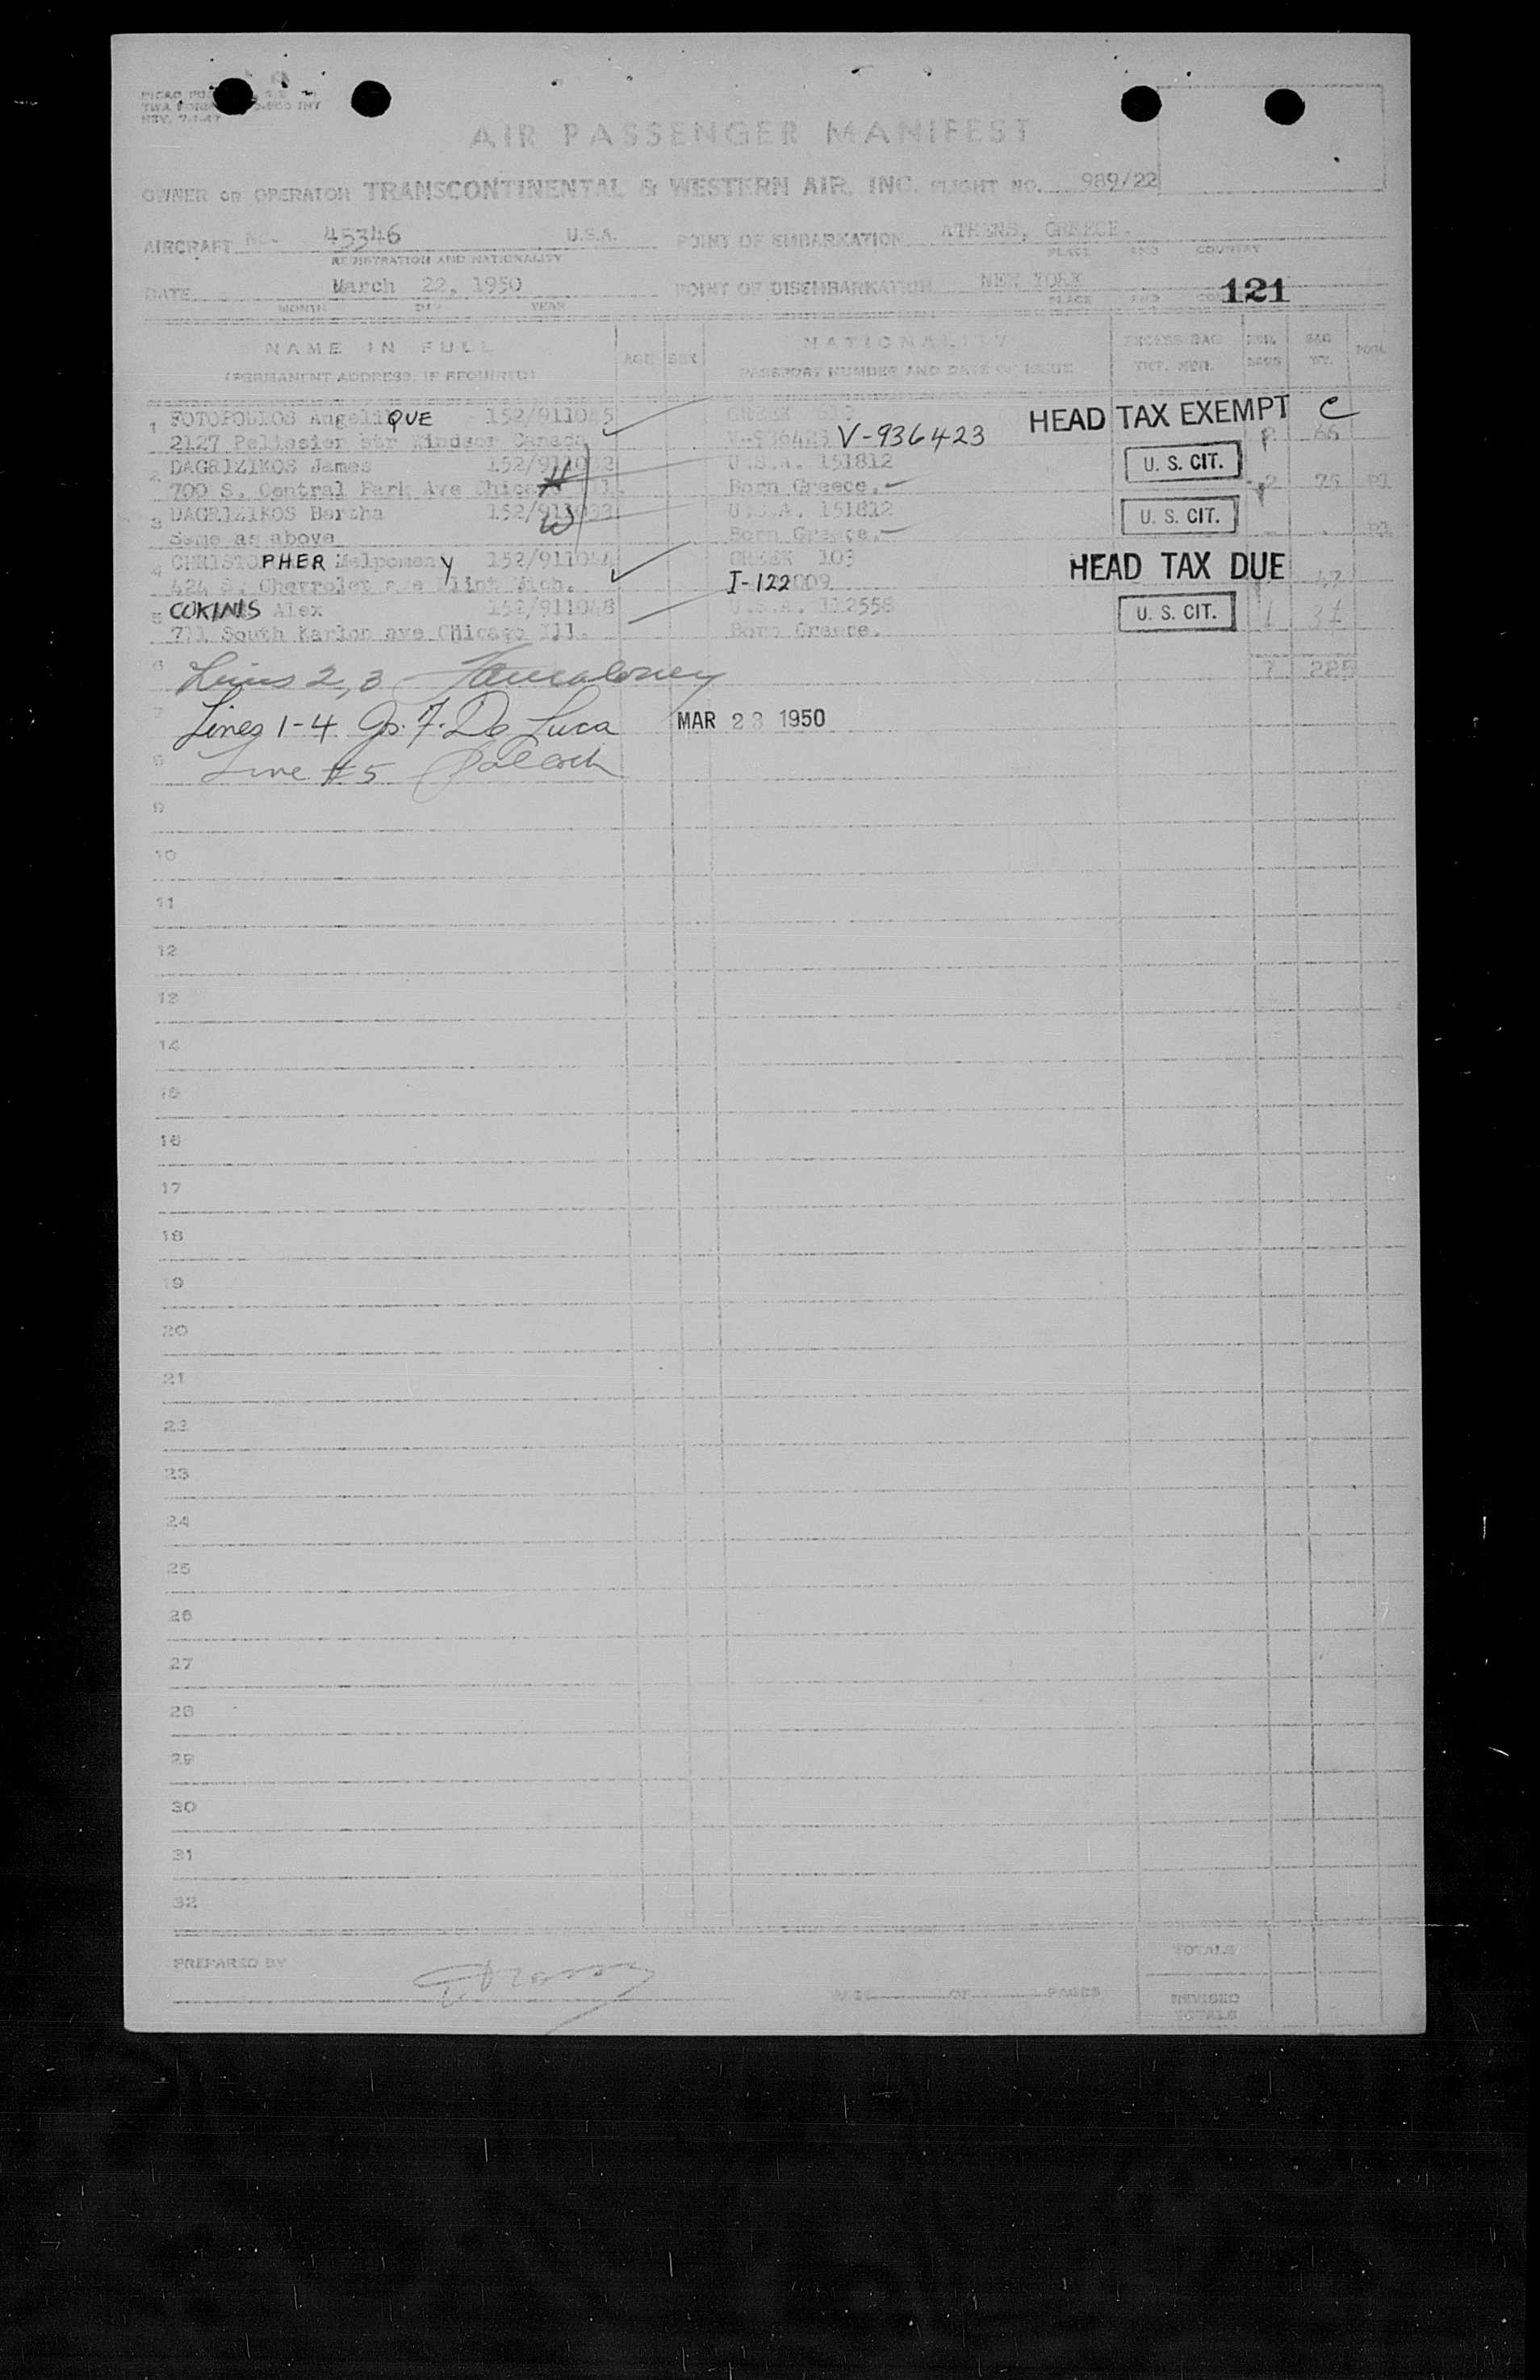 TWA FORM
REV. 7-1-47
AIR PASSENGER MANIFEST
OWNER OR OPERATOR TRANSCONTINENTAL & WESTERN AIR, INC. FLIGHT NO. 989/22
AIRCRAFT NO. 45346 U.S.A. POINT OF EMBARKATION ATHENS, GREECE.
REGISTRATION AND NATIONALITY PLACE AND COUNTRY
DATE March 22, 1950 POINT OF DISEMBARKATION NEW YORK
MONTH DAY YEAR PLACE AND 121
NAME IN FULL AGE SEX NATIONALITY EXCESS BAG NUM. BAG
(PERMANENT ADDRESS, IF REQUIRED) PASSPORT NUMBER AND DATE OF ISSUE TKT. NUM. BAGS WT.
1 FOTOPOULOS AngeliQUE 152/911045 GREEK HEAD TAX EXEMPT C
2127 Pelissier str Windsor Canada V-936423 V-936423 2 66
2 DAGRIZIKOS James 152/911032 U.S.A. 151812 U. S. CIT.
700 S. Central Park Ave Chicago Ill. H Born Greece. 2 75
3 DAGRIZIKOS Bertha 152/911033 U.S.A. 151812 U. S. CIT.
Same as above W Born Greece.
4 CHRISTOPHER Melpomeny 152/91104 GREEK 103 HEAD TAX DUE
424 S. Chevrolet ave Flint Mich. I-122009 47
5 COKINIS Alex 152/911048 U.S.A. 112556 U. S. CIT. 1 37
711 South Karlov ave Chicago Ill. Born Greece.
6 Lines 2, 3 7 225
7 Lines 1-4 Jos. F. De Luca MAR 23 1950
8 Line #5
9
10
11
12
13
14
15
16
17
18
19
20
21
22
23
24
25
26
27
28
29
30
31
32
PREPARED BY TOTALS
PAGE OF PAGES REVISED
TOTALS